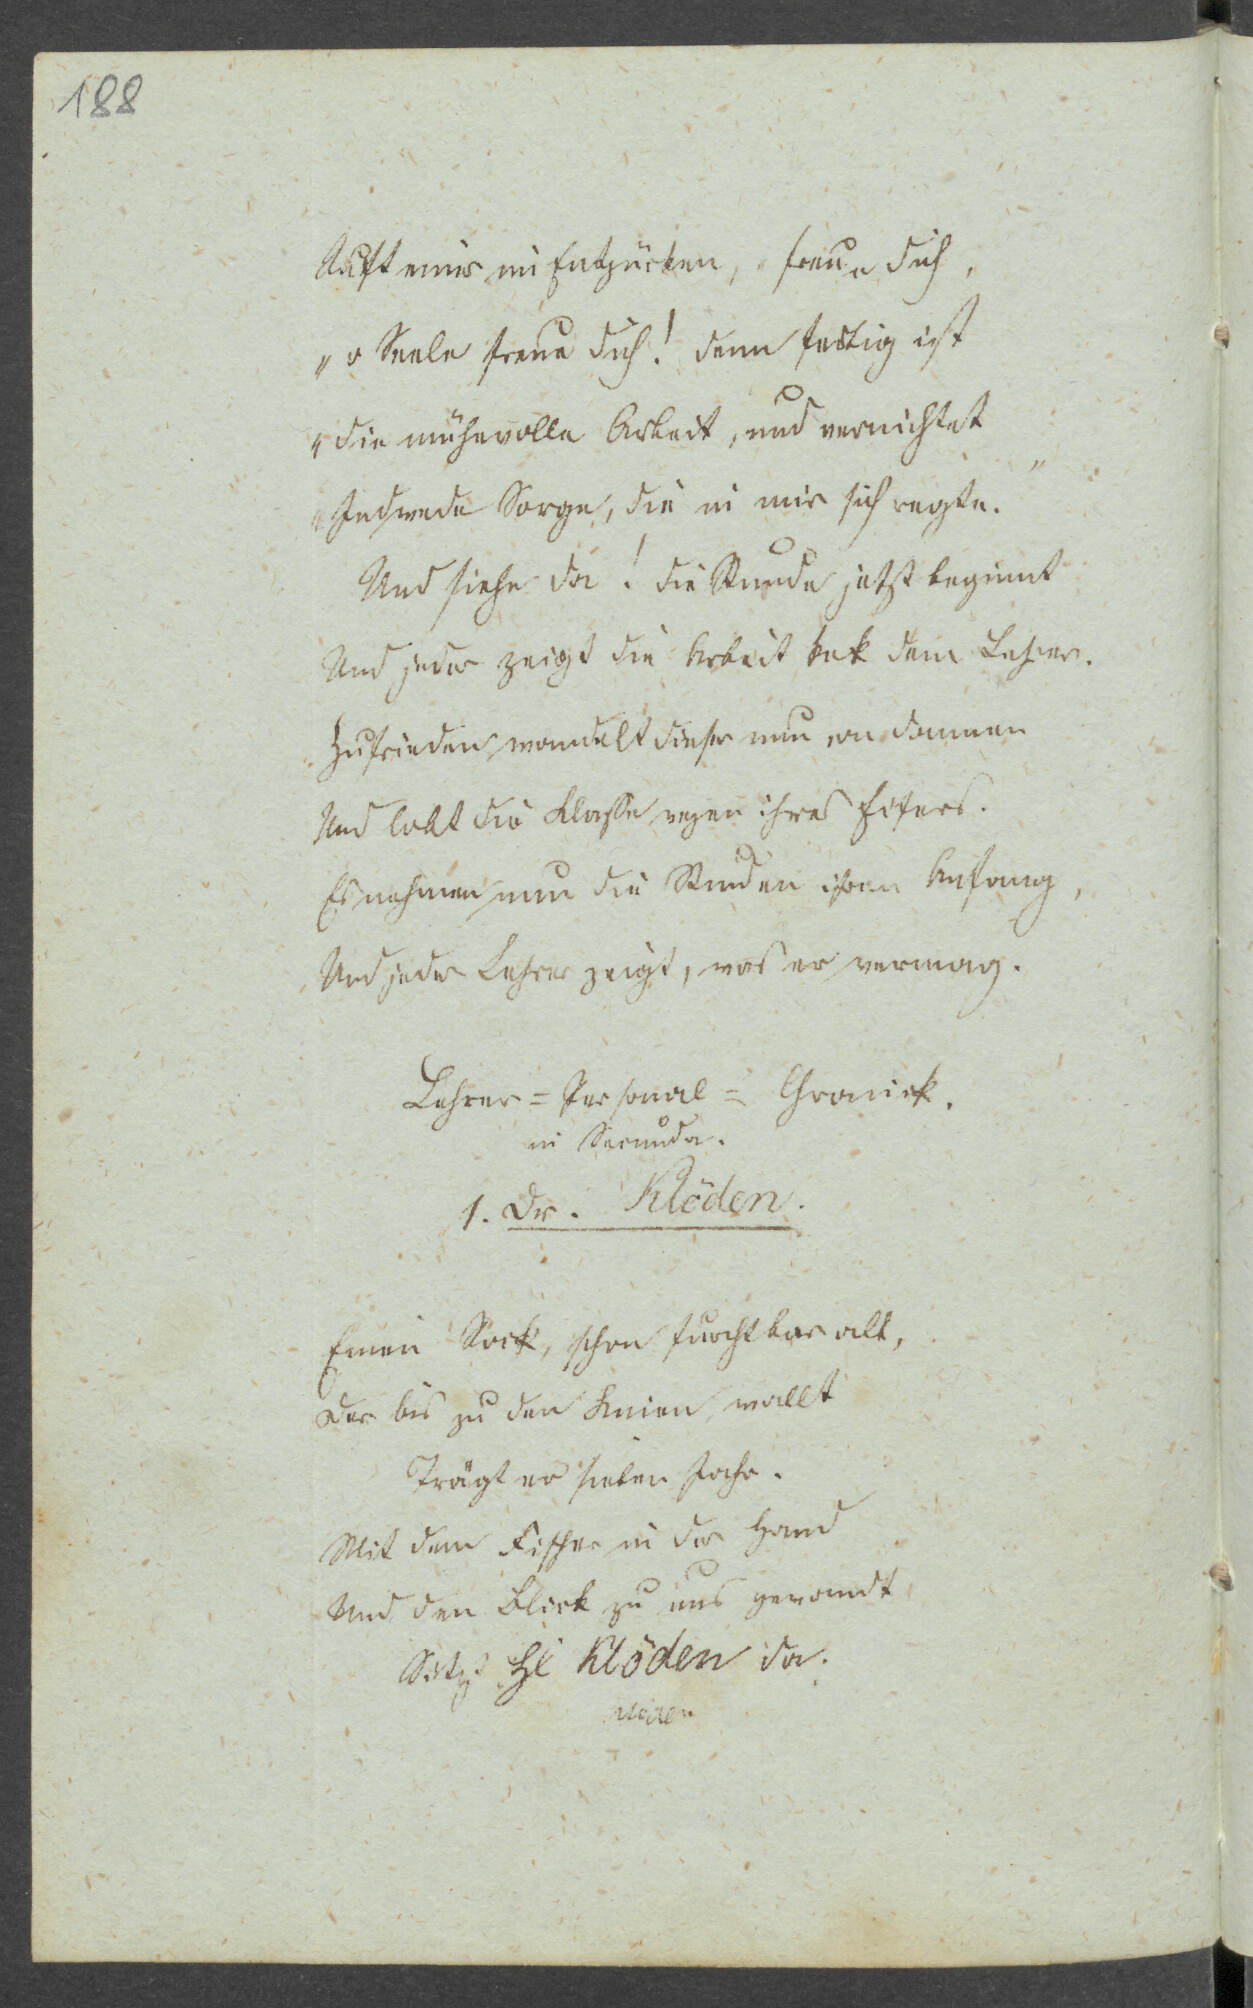 188
Ruft einer im Entzücken, „freue dich,
„o Seele freue dich! denn fertig ist
„die mühevolle Arbeit, und vernichtet
„Jedwede Sorge, die in mir sich regte."
Und siehe da! die Stunde jetzt beginnt
Und jeder zeigt die Arbeit dem Lehrer.
Zufrieden wandelt dieser nun von dannen
Und lobt die Klasse wegen ihres Eifers.
Es nehmen nun die Stunden ihren Anfang,
Und jeder Lehrer zeigt, was er vermag.
Lehrer=Personal=Chronick.
in Secunda.
1. Dr. Klöden.
Einen Rock, schon furchtbar alt,
Der bis zu den Knien wallt
Trägt er sieben Jahr.
Mit dem Fischer in der Hand
Und den Blick zu uns gewandt
Sitzt Klöden da.